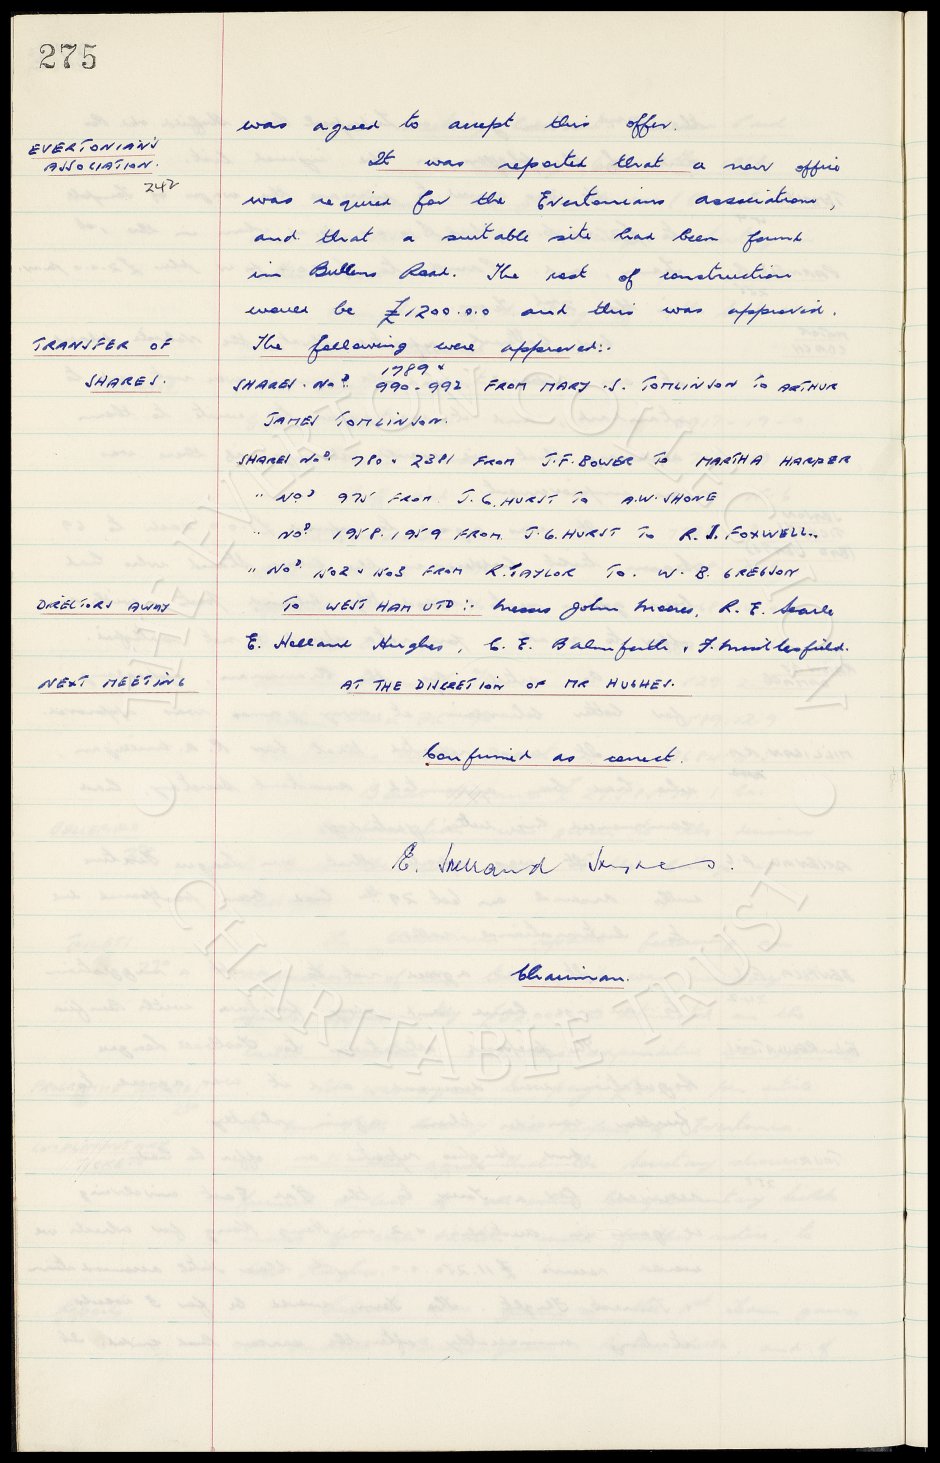 275
was agreed to accept this offer.
EVERTONIANS
ASSOCIATION.
242
It was reported that a new office
was required for the Evertonians association,
and that a suitable site had been found
in Bullens Road. The cost of construction
would be £1200.0.0 and this was approved.
TRANSFER OF
SHARES.
The following were approved:-
1789 &
SHARES. Nos. 990-992 FROM MARY .S. TOMLINSON TO ARTHUR
JAMES TOMLINSON.
SHARES Nos. 780 & 2381 FROM J.F. BOWER TO MARTHA HARPER
" Nos 975 FROM J.G. HURST TO A.W. SHONE
" Nos 1958.1959 FROM J.G. HURST TO R. J. FOXWELL..
" Nos. 1502 & 1503 FROM R. TAYLOR TO. W. B. GREGSON
DIRECTORS AWAY
TO WEST HAM UTD :- Messrs John Moores, R. E. Searle
E. Holland Hughes, C. E. Balmforth & F. Micklesfield.
NEXT MEETING
AT THE DISCRETION OF MR HUGHES.
Confirmed as correct.
E. Holland Hughes.
Chairman.
EVERTON COLLECTION
CHARITABLE TRUST